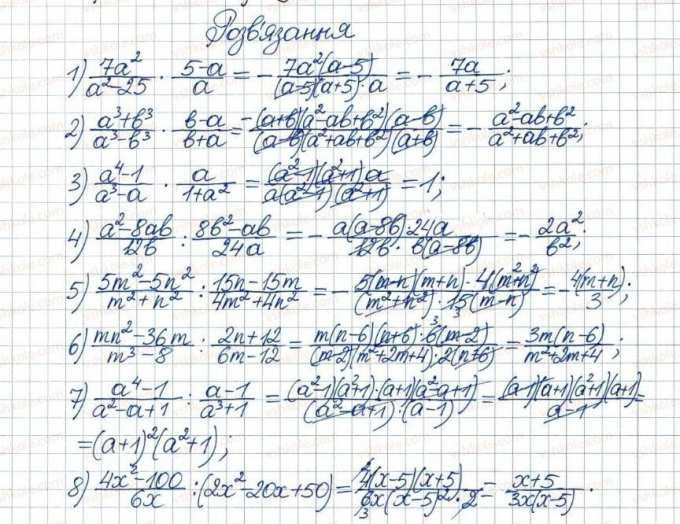 Розв'язання
1) \frac{7a^2}{a^2-25} · \frac{5-a}{a} = -\frac{7a^2(a-5)}{(a-5)(a+5)·a} = -\frac{7a}{a+5};
2) \frac{a^3+b^3}{a^3-b^3} · \frac{b-a}{b+a} = \frac{-(a+b)(a^2-ab+b^2)(a-b)}{(a-b)(a^2+ab+b^2)(a+b)} = -\frac{a^2-ab+b^2}{a^2+ab+b^2};
3) \frac{a^4-1}{a^3-a} · \frac{a}{1+a^2} = \frac{(a^2-1)(a^2+1)a}{a(a^2-1)(a^2+1)} = 1;
4) \frac{a^2-8ab}{12b} : \frac{8b^2-ab}{24a} = -\frac{a(a-8b)·24a}{12b·b(a-8b)} = -\frac{2a^2}{b^2};
5) \frac{5m^2-5n^2}{m^2+n^2} : \frac{15n-15m}{4m^2+4n^2} = -\frac{5(m-n)(m+n)·4(m^2+n^2)}{(m^2+n^2)·15(m-n)} = -\frac{4(m+n)}{3};
6) \frac{mn^2-36m}{m^3-8} : \frac{2n+12}{6m-12} = \frac{m(n-6)(n+6)·6(m-2)}{(m-2)(m^2+2m+4)·2(n+6)} = \frac{3m(n-6)}{m^2+2m+4};
7) \frac{a^4-1}{a^2-a+1} : \frac{a-1}{a^3+1} = \frac{(a^2-1)(a^2+1)·(a+1)(a^2-a+1)}{(a^2-a+1)·(a-1)} = \frac{(a-1)(a+1)(a^2+1)(a+1)}{a-1} =
=(a+1)^2(a^2+1);
8) \frac{4x^2-100}{6x} : (2x^2-20x+50) = \frac{4(x-5)(x+5)}{6x(x-5)^2·2} = \frac{x+5}{3x(x-5)}.